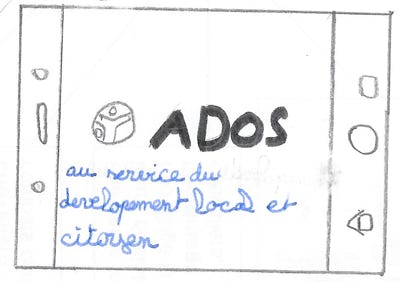 ADOS
au service du
developement local et
citoyen